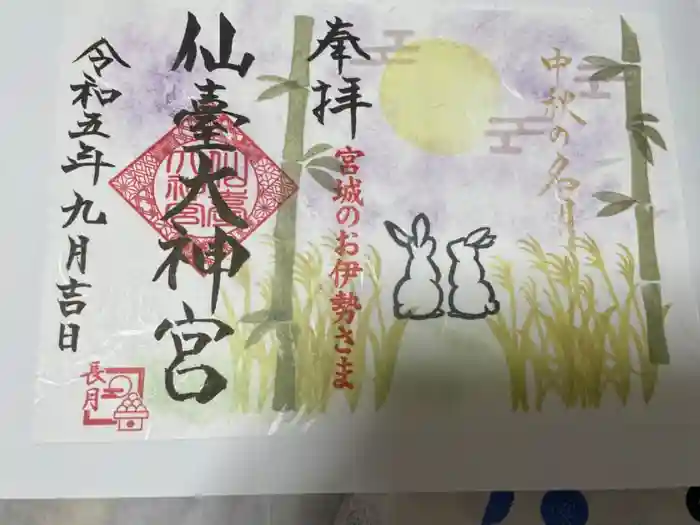 中秋の名月
奉拝
宮城のお伊勢さま
仙臺大神宮
仙臺大神宮
令和五年九月吉日
長月